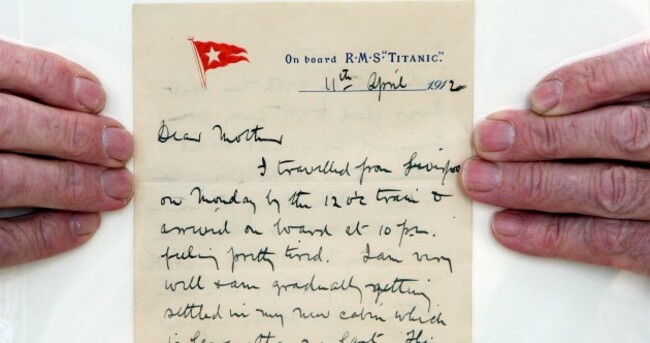 On board R·M·S·"TITANIC."
11th April 1912
Dear Mother
I travelled from Liverpool
on Monday by the 12 o'c train &
arrived on board at 10 pm.
feeling pretty tired. I am very
well & am gradually getting
settled in my new cabin which
is than my last. This